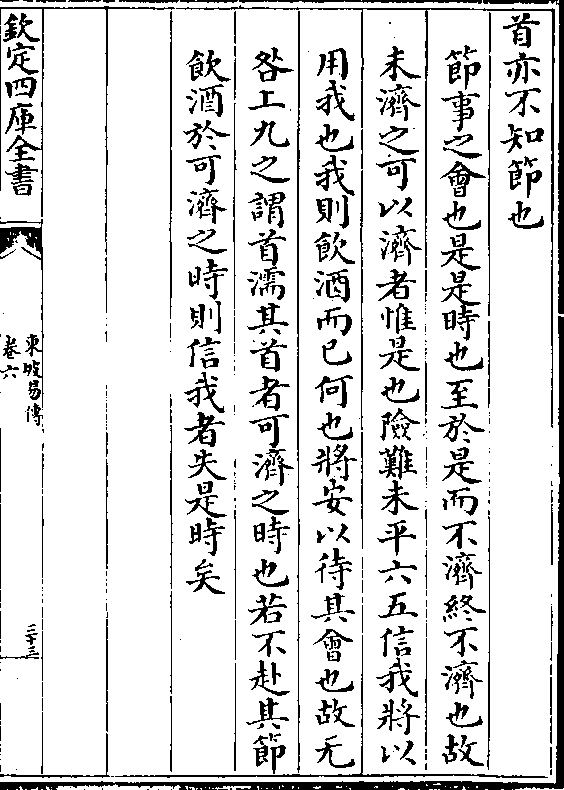 首亦不知節也
節事之會也是是時也至於是而不濟終不濟也故
未濟之可以濟者惟是也險難未平六五信我將以
用我也我則飲酒而已何也將安以待其會也故无
咎上九之謂首濡其首者可濟之時也若不赴其節
飲酒於可濟之時則信我者失是時矣
欽定四庫全書
東坡易傳
卷六
三十三